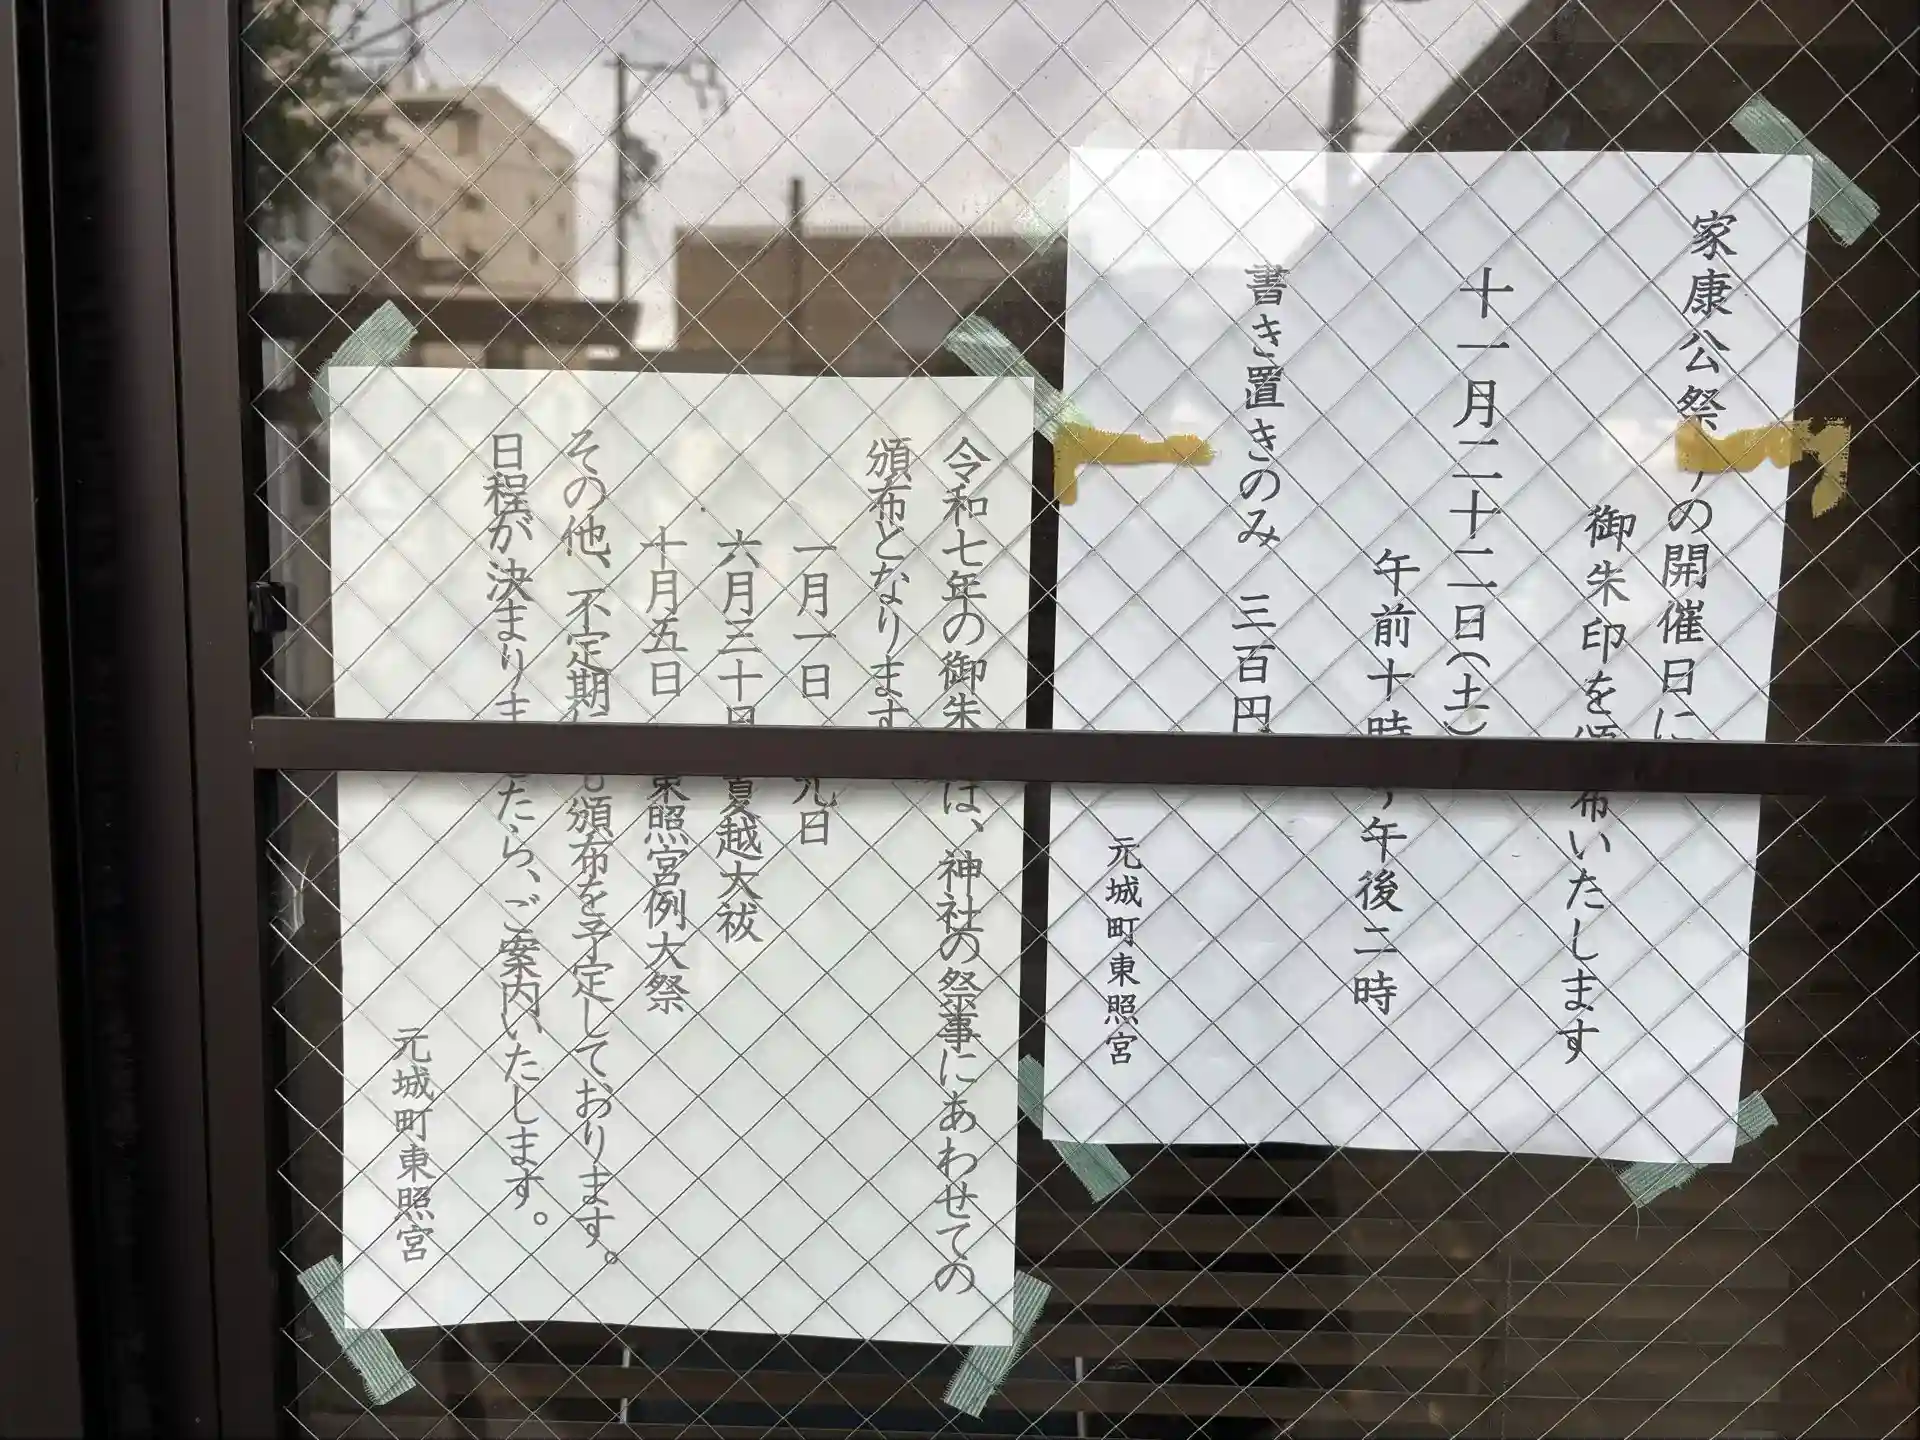 家康公祭りの開催日に
御朱印を頒布いたします
十一月二十二日(土)
午前十時 午後二時
書き置きのみ 三百円
元城町東照宮
令和七年の御朱 は、神社の祭事にあわせての
頒布となります
一月一日 元日
六月三十日 夏越大祓
十月五日 東照宮例大祭
その他、不定期にも頒布を予定しております。
日程が決まりましたら、ご案内いたします。
元城町東照宮